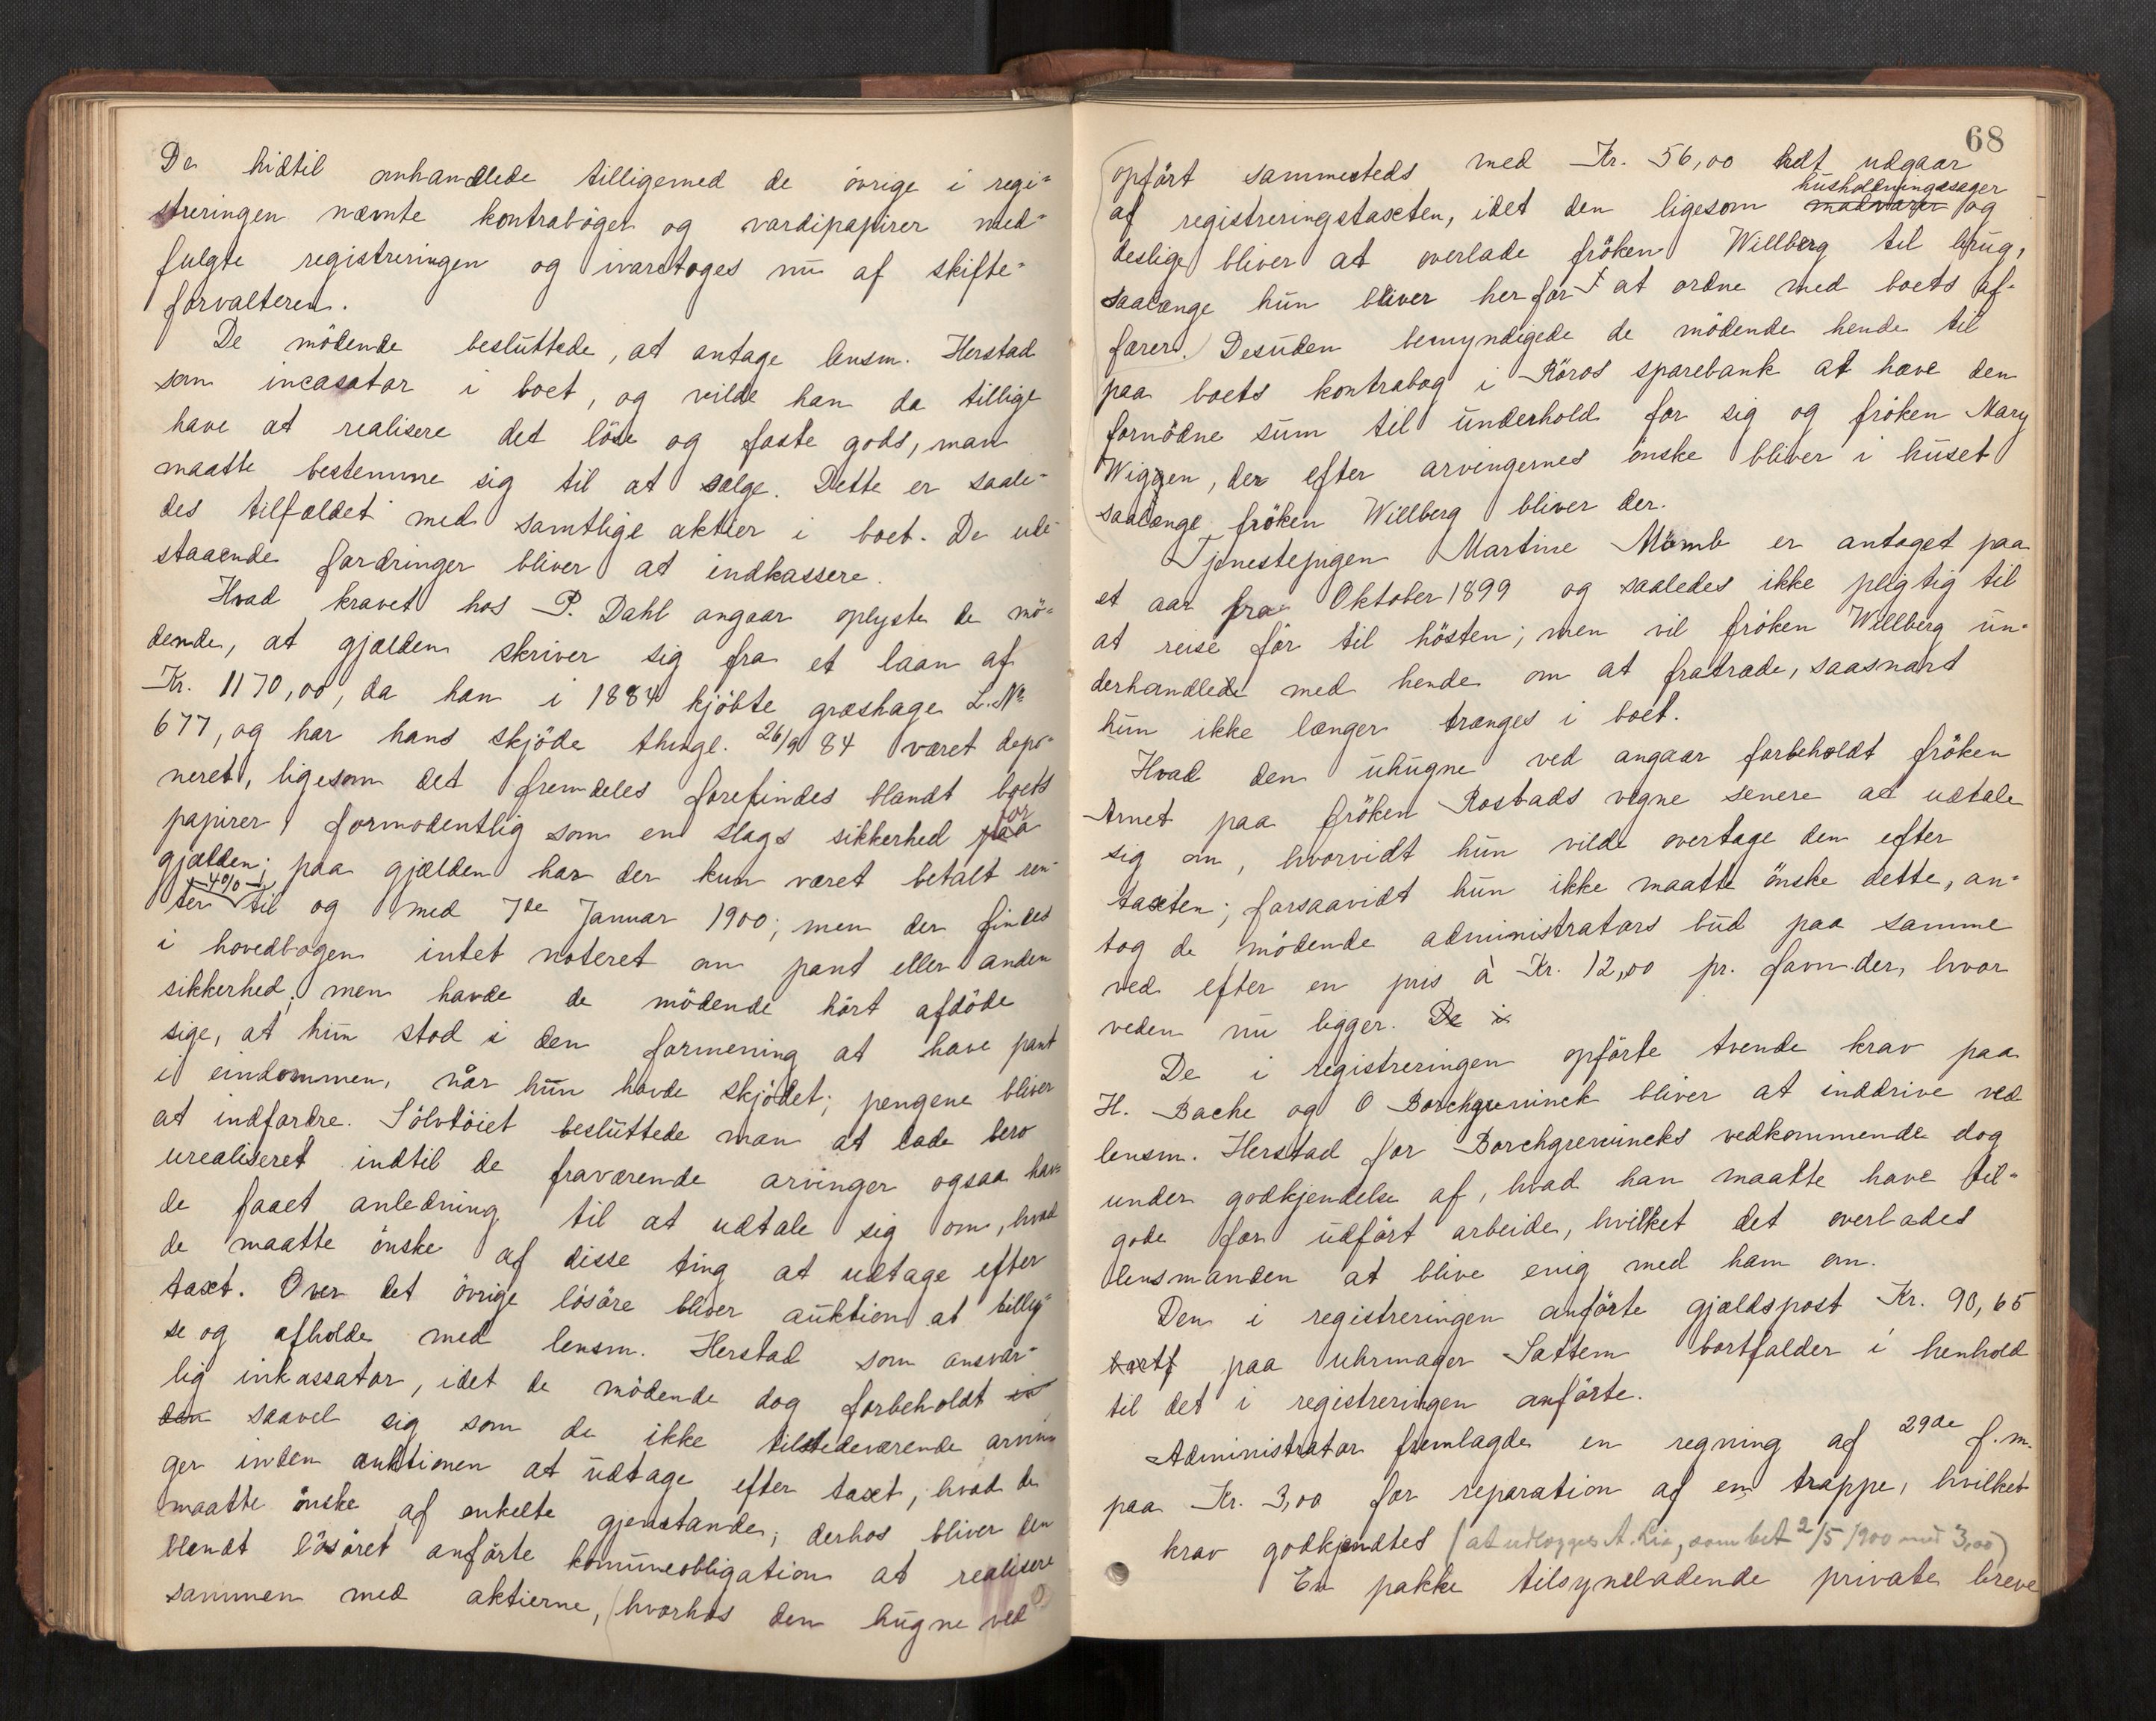 De hidtil omhandlede tilligemed de övrige i regi=
streringen nævnte kontraböger og værdipapirer med=
fulgte registreringen og ivaretoges nu af skifte=
forvalteren.
De mödende besluttede, at antage lensm. Herstad
som incasator i boet, og vilde han da tillige
have at realisere det löse og faste gods, man
maatte bestemme sig til at sælge. Dette er saale=
des tilfældet med samtlige aktier i boet. De ude=
staaende fordringer bliver at indkassere.
Hvad kravet hos P. Dahl angaar oplyste de mö=
dende, at gjælden skriver sig fra et laan af
Kr. 1170,00, da han i 1884 kjöbte græshage L.No
677, og har hans skjöde thingl. 26/9 84 været depo=
neret, ligesom det fremdeles forefindes blandt boets
papirer formodentlig som en slags sikkerhed paa for
gjælden; paa gjælden har der kun været betalt ren=
ter 4% til og med 7de Januar 1900; men der findes
i hovedbogen intet noteret om pant eller anden
sikkerhed; men havde de mödende hört afdöde
sige, at hun stod i den formening at have pant
i eindommen, når hun havde skjödet; pengene bliver
at indfordre. Sölvtöiet besluttede man at lade bero
urealiseret indtil de fraværende arvinger ogsaa hav=
de faaet anledning til at udtale sig om, hvad
de maatte önske af disse ting at udtage efter
taxt. Over det övrige lösöre bliver auktion at billy=
se og afholde med lensm. Herstad som ansvar=
lig inkassator, idet de mödende dog forbeholdt
saavel sig som de ikke tilstedeværende arvin
ger inden auktionen at udtage efter taxt, hvad de
maatte önske af enkelte gjenstande; derhos bliver den
blandt lösöret anförte kommuneobligation at realisere
sammen med aktierne, (hvorhos den hugne ved
68
opfört sammesteds med Kr. 56,00 helt udgaar
af registreringstaxten, idet den ligesom madvarer husholdningssager og
deslige bliver at overlade fröken Willberg til brug,
saalænge hun bliver her for at ordne med boets af=
færer.) Desuden bemyndigede de mödende hende til
paa boets kontrabog i Röros sparebank at hæve den
fornödne sum til underhold for sig og fröken Mary
Wiggen, der efter arvingernes önske bliver i huset
saalænge fröken Willberg bliver der.
Tjenestepigen Martine Momb er antaget paa
et aar fra Oktober 1899 og saaledes ikke pligtig til
at reise för til hösten; men vil fröken Willberg un=
derhandlede med hende om at fratræde, saasnart
hun ikke længer trænges i boet.
Hvad den uhugne ved angaar forbeholdt fröken
Arnet paa fröken Rostads vegne senere at udtale
sig om, hvorvidt hun vilde overtage den efter
taxten; forsaavidt hun ikke maatte önske dette, an=
tog de mödende administrators bud paa samme
ved efter en pris à Kr. 12,00 pr. favn der, hvor
veden nu ligger. De i
De i registreringen opförte tvende krav paa
H. Bache og O Borchgrevinck bliver at inddrive ved
lensm. Herstad for Borchgrevincks vedkommende dog
under godkjendelse af, hvad han maatte have til=
gode for udfört arbeide, hvilket det overlades
lensmanden at blive enig med ham om.
Den i registreringen anförte gjældspost Kr. 90,65
bortf paa uhrmager Sattem bortfalder i henhold
til det i registreringen anförte.
Administrator fremlagde en regning af 29de f.m.
paa Kr. 3,00 for reparation af en trappe, hvilket
krav godkjendtes (at udlægges A. Lix, som bet 2/5 1900 med 3,00)
En pakke tilsyneladende private breve